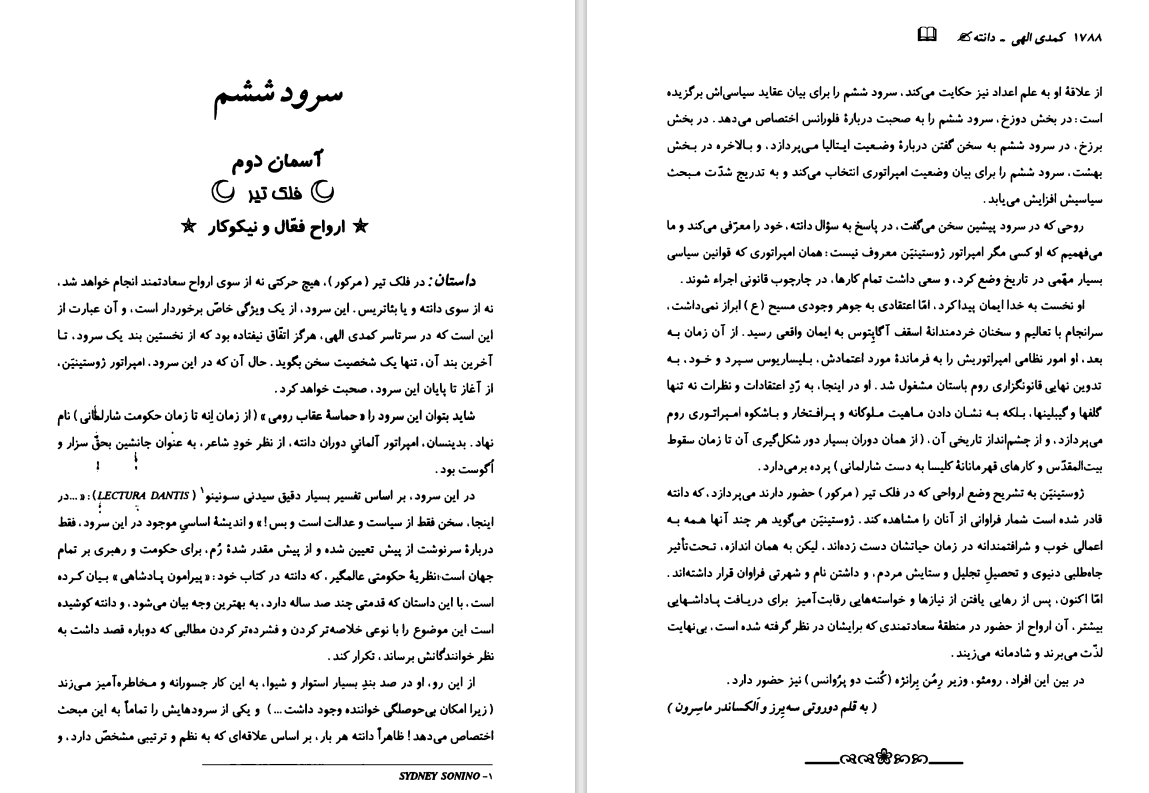 سرود ششم
آسمان دوم
فلک تیر
ارواح فعّال و نیکوکار
داستان: در فلک تیر ( مرکور )، هیچ حرکتی نه از سوی ارواح سعادتمند انجام خواهد شد،
نه از سوی دانته و یا بئاتریس. این سرود، از یک ویژگی خاصّ برخوردار است، و آن عبارت از
این است که در سرتاسر کمدی الهی، هرگز اتفّاق نیفتاده بود که از نخستین بند یک سرود، تـا
آخرین بند آن، تنها یک شخصیت سخن بگوید. حال آن که در این سرود، امپراتور ژوستینیَن،
از آغاز تا پایان این سرود، صحبت خواهد کرد.
شاید بتوان این سرود را « حماسهٔ عقاب رومی » ( از زمان اِنِه تا زمان حکومت شارلمانی ) نام
نهاد. بدینسان، امپراتور آلمانیِ دوران دانته، از نظر خودِ شاعر، به عنوان جانشین بحقّ سزار و
اُگوست بود.
در این سرود، بر اساس تفسیر بسیار دقیق سیدنی سـونینو۱ ( LECTURA DANTIS ): « ...در
اینجا، سخن فقط از سیاست و عدالت است و بس! » و اندیشهٔ اساسیِ موجود در این سرود، فقط
دربارهٔ سرنوشت از پیش تعیین شده و از پیش مقدر شدهٔ رُم، برای حکومت و رهبری بر تمام
جهان است؛نظریهٔ حکومتی عالمگیر، که دانته در کتاب خود: « پیرامون پـادشاهی » بـیان کـرده
است، با این داستان که قدمتی چند صد ساله دارد، به بهترین وجه بیان می‌شود، و دانته کوشیده
است این موضوع را با نوعی خلاصه‌تر کردن و فشرده‌تر کردن مطالبی که دوباره قصد داشت به
نظر خوانندگانش برساند، تکرار کند.
از این رو، او در صد بندِ بسیار استوار و شیوا، به این کار جسورانه و مـخاطره‌آمیز مـی‌زند
( زیرا امکان بی‌حوصلگی خواننده وجود داشت... ) و یکی از سرودهایش را تماماً به این مبحث
اختصاص می‌دهد! ظاهراً دانته هر بار، بر اساس علاقه‌ای که به نظم و ترتیبی مشخصّ دارد، و
۱- SYDNEY SONINO
۱۷۸۸ کمدی الهی ـ دانته
از علاقهٔ او به علم اعداد نیز حکایت می‌کند، سرود ششم را برای بیان عقاید سیاسی‌اش برگزیده
است: در بخش دوزخ، سرود ششم را به صحبت دربارهٔ فلورانس اختصاص می‌دهد. در بخش
برزخ، در سرود ششم به سخن گفتن دربارهٔ وضـعیت ایـتالیا مـی‌پردازد، و بـالاخره در بـخش
بهشت، سرود ششم را برای بیان وضعیت امپراتوری انتخاب می‌کند و به تدریج شدّت مـبحث
سیاسیش افزایش می‌یابد.
روحی که در سرود پیشین سخن می‌گفت، در پاسخ به سؤال دانته، خود را معرّفی می‌کند و ما
می‌فهمیم که او کسی مگر امپراتور ژوستینیَن معروف نیست: همان امپراتوری که قوانین سیاسی
بسیار مهّمی در تاریخ وضع کرد، و سعی داشت تمام کارها، در چارچوب قانونی اجراء شوند.
او نخست به خدا ایمان پیدا کرد، امّا اعتقادی به جوهر وجودی مسیح ( ع ) ابراز نمی‌داشت،
سرانجام با تعالیم و سخنان خردمندانهٔ اسقف آگاپِتوس به ایمان واقعی رسید. از آن زمان بـه
بعد، او امور نظامی امپراتوریش را به فرماندهٔ مورد اعتمادش، بـلیساریوس سـپرد و خـود، بـه
تدوین نهایی قانونگزاری روم باستان مشغول شد. او در اینجا، به رّدِ اعتقادات و نظرات نه تنها
گلفها و گیبلینها، بـلکه بـه نشـان دادن مـاهیت مـلوکانه و پـرافـتخار و بـاشکوه امـپراتـوری روم
می‌پردازد، و از چشم‌انداز تاریخی آن، ( از همان دوران بسیار دور شکل‌گیری آن تا زمان سقوط
بیت‌المقدّس و کارهای قهرمانانهٔ کلیسا به دست شارلمانی ) پرده برمی‌دارد.
ژوستینیَن به تشریح وضع ارواحی که در فلک تیر ( مرکور ) حضور دارند می‌پردازد، که دانته
قادر شده است شمار فراوانی از آنان را مشاهده کند. ژوستینیَن می‌گوید هر چند آنها همـه بـه
اعمالی خوب و شرافتمندانه در زمان حیاتشان دست زده‌اند، لیکن به همان اندازه، تـحت‌تأثیر
جاه‌طلبی دنیوی و تحصیلِ تجلیل و ستایش مردم، و داشتن نام و شهرتی فراوان قرار داشته‌اند.
امّا اکنون، پس از رهایی یافتن از نیازها و خواسته‌هایی رقابت‌آمیز برای دریـافت پـاداشـهایی
بیشتر، آن ارواح از حضور در منطقهٔ سعادتمندی که برایشان در نظر گرفته شده است، بی‌نهایت
لذّت می‌برند و شادمانه می‌زیند.
در بین این افراد، رومئو، وزیر رِمُن بِرانژه ( کُنت دو پرُوانس ) نیز حضور دارد.
( به قلم دوروتی سه‌یِرز و اَلکساندر ماسِرون )